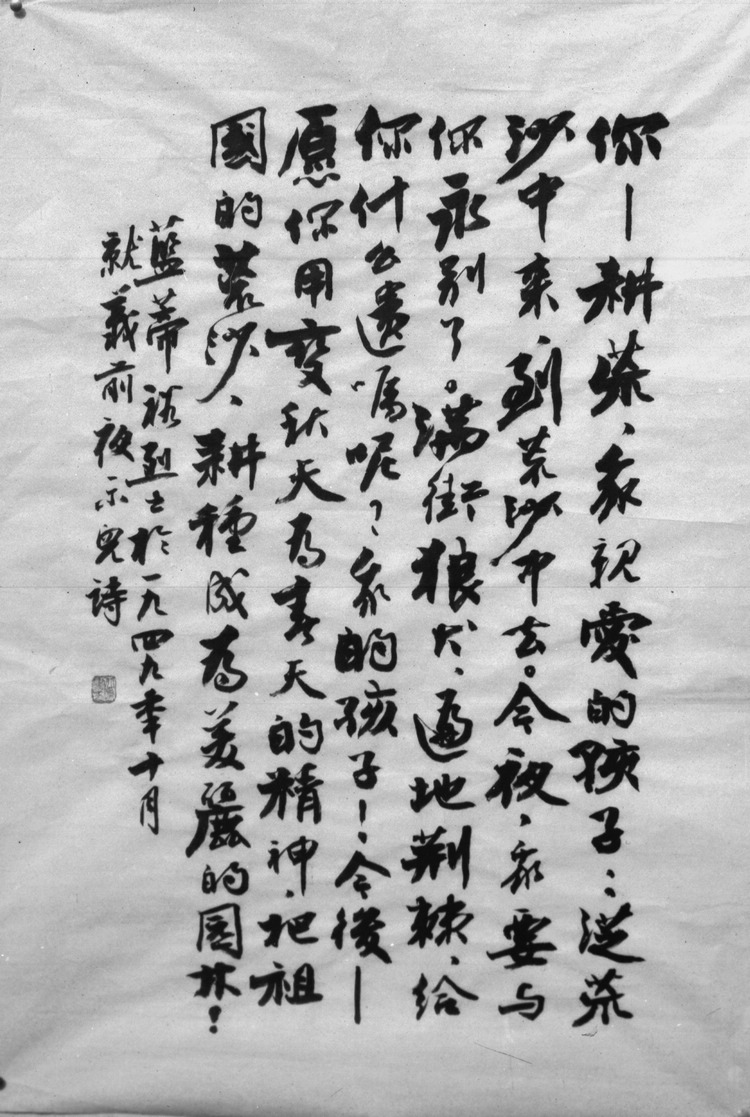 你—耕荒、我親愛的孩子：從荒
沙中来、到荒沙中去。今夜，我要与
你永别了。满街狼犬、遍地荆棘、给
你什么遗嘱呢？我的孩子！今後—
愿你用变秋天為春天的精神、把祖
國的荒沙、耕種成為美麗的园林！
藍蒂裕烈士於一九四九年十月
就義前夜示兒詩